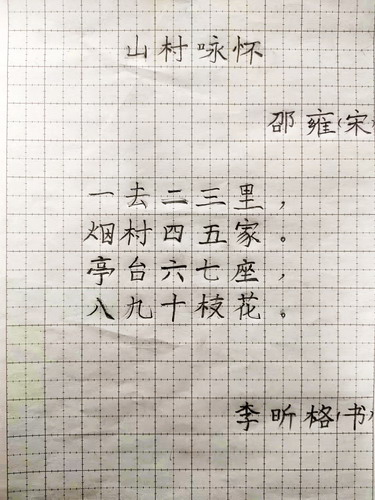 山村咏怀
邵雍(宋)
一去二三里，
烟村四五家。
亭台六七座，
八九十枝花。
李昕格(书)